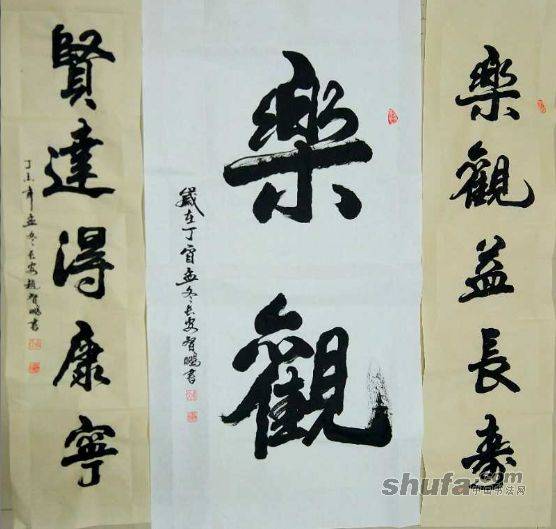 樂觀益長壽
樂觀
歲在丁酉孟冬長安智鵬書
賢達得康寧
丁酉年孟冬長安趙智鵬書
shufa.com
中国书法网